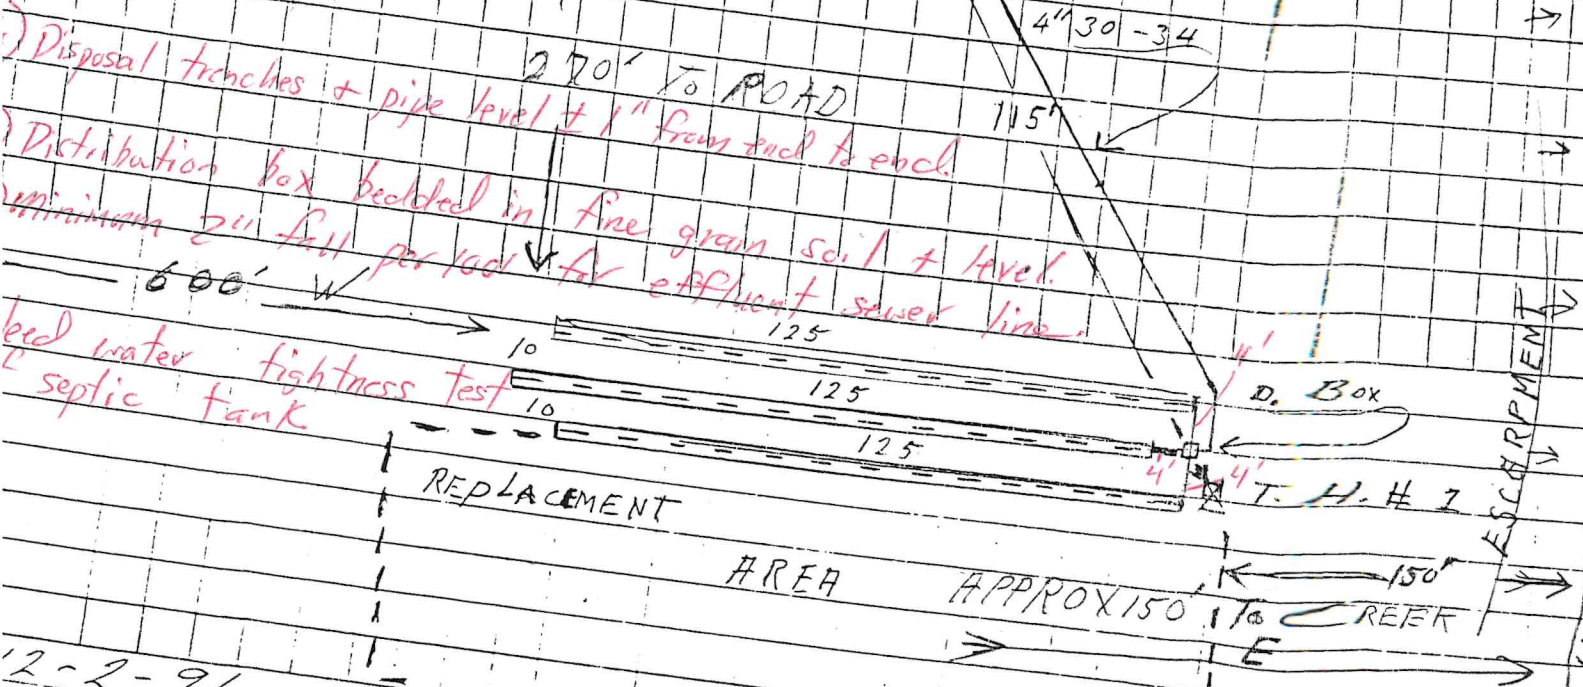 4" 30-34
) Disposal trenches + pipe level ± 1" from end to end.
270' To ROAD
115'
) Distribution box bedded in fine grain soil + level.
) minimum 2" fall per rod for effluent sewer line.
600' W
eed water tightness test
septic tank
125
10
125
10
125
11'
D. Box
4'
4'
T. H. # 1
ESCARPMENT
REPLACEMENT
AREA
APPROX 150' To CREEK
150'
E
12-2-91